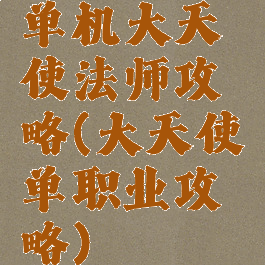 单机大天
使法师攻
略(大天使
单职业攻
略)